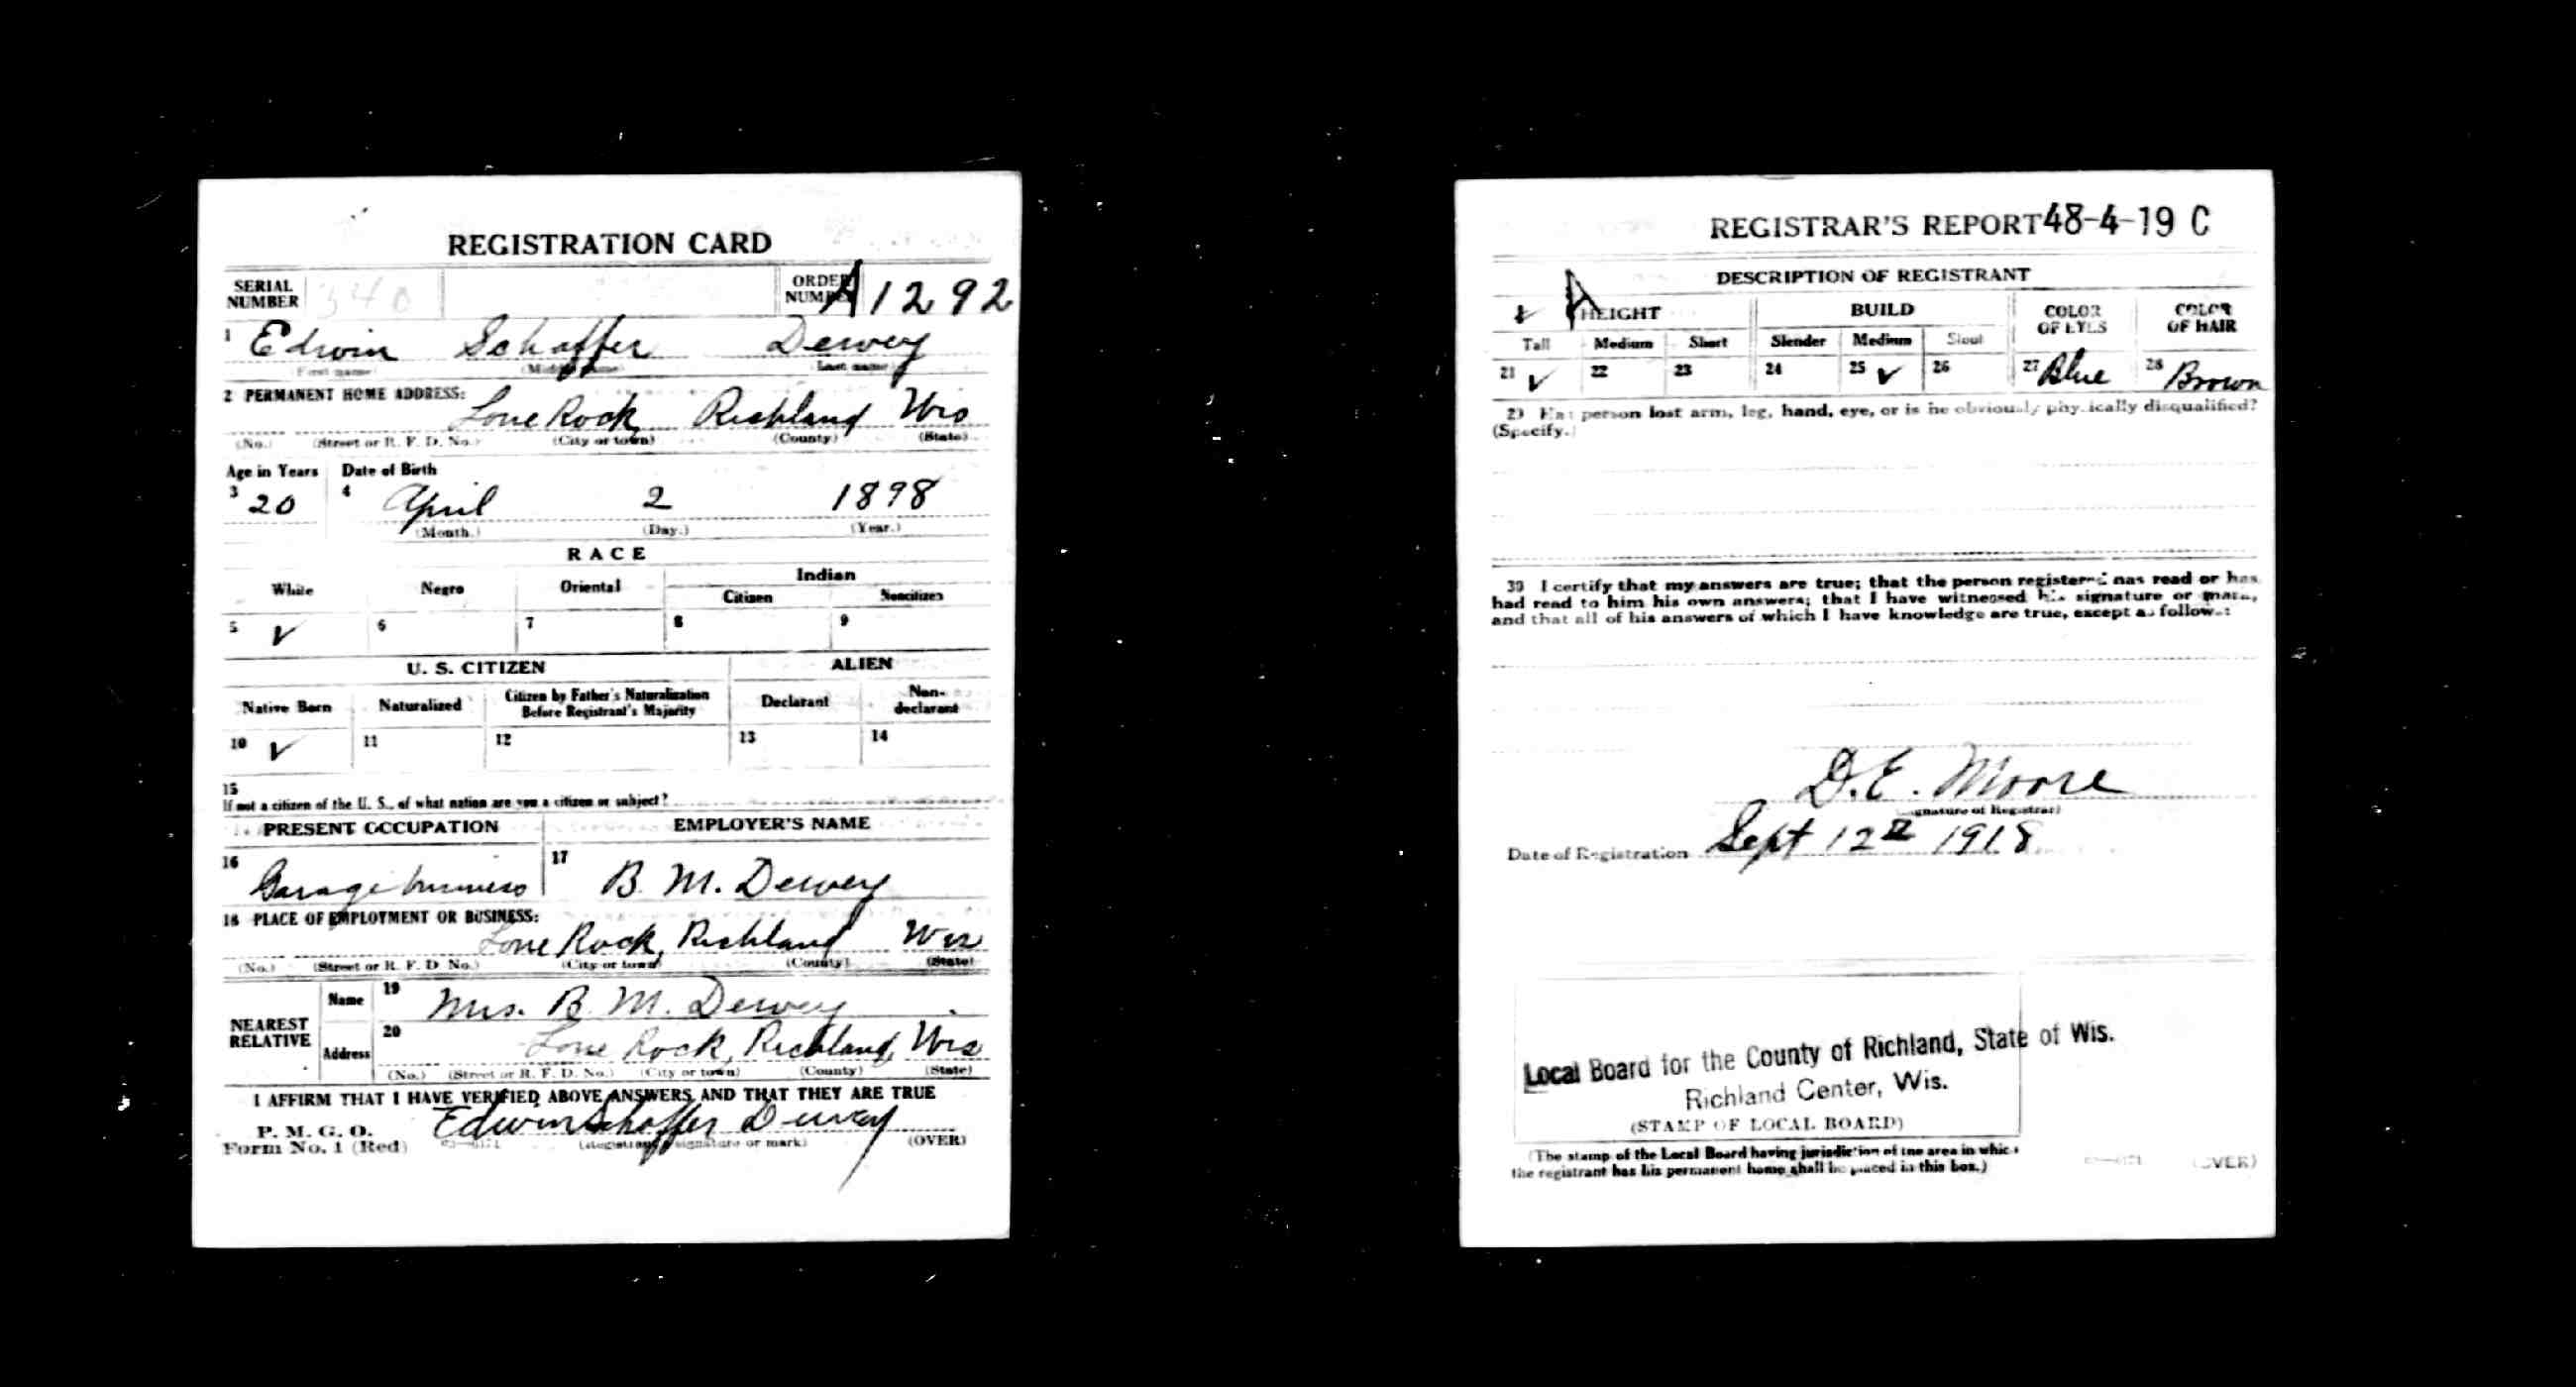 REGISTRATION CARD
SERIAL NUMBER 340 ORDER NUMBER A 1292
1 Edwin Schaffer Dewey
(First name) (Middle name) (Last name)
2 PERMANENT HOME ADDRESS:
Lone Rock Richland Wis
(No.) (Street or R. F. D. No.) (City or town) (County) (State)
Age in Years Date of Birth
3 20 4 April 2 1898
(Month.) (Day.) (Year.)
RACE
White Negro Oriental Indian
Citizen Noncitizen
5 ✓ 6 7 8 9
U. S. CITIZEN ALIEN
Native Born Naturalized Citizen by Father's Naturalization Before Registrant's Majority Declarant Non-declarant
10 ✓ 11 12 13 14
15
If not a citizen of the U. S., of what nation are you a citizen or subject?
PRESENT OCCUPATION EMPLOYER'S NAME
16 Garage business 17 B. M. Dewey
18 PLACE OF EMPLOYMENT OR BUSINESS:
Lone Rock, Richland Wis
(No.) (Street or R. F. D. No.) (City or town) (County) (State)
NEAREST RELATIVE
Name 19 Mrs. B. M. Dewey
Address 20 Lone Rock, Richland, Wis
(No.) (Street or R. F. D. No.) (City or town) (County) (State)
I AFFIRM THAT I HAVE VERIFIED ABOVE ANSWERS AND THAT THEY ARE TRUE
P. M. G. O.
Form No. 1 (Red) Edwin Schaffer Dewey
(Registrant's signature or mark) (OVER)
REGISTRAR'S REPORT 48-4-19 C
DESCRIPTION OF REGISTRANT
HEIGHT BUILD COLOR OF EYES COLOR OF HAIR
Tall Medium Short Slender Medium Stout
21 ✓ 22 23 24 25 ✓ 26 27 Blue 28 Brown
29 Has person lost arm, leg, hand, eye, or is he obviously physically disqualified?
(Specify.)
30 I certify that my answers are true; that the person registered has read or has
had read to him his own answers; that I have witnessed his signature or mark,
and that all of his answers of which I have knowledge are true, except as follows:
D. E. Moore
(Signature of Registrar)
Date of Registration Sept 12 1918
Local Board for the County of Richland, State of Wis.
Richland Center, Wis.
(STAMP OF LOCAL BOARD)
(The stamp of the Local Board having jurisdiction of the area in which
the registrant has his permanent home shall be placed in this box.)
(OVER)